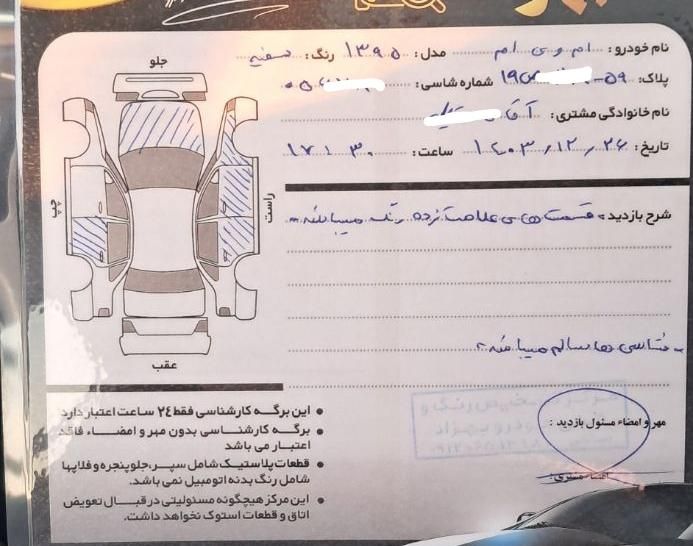 نام خودرو : ام وی ام مدل : ۱۳۹۵ رنگ : سفید
پلاک : ۵۹ - ۱۹ شماره شاسی :
نام خانوادگی مشتری : آقای
تاریخ : ۱۴۰۳/۱۲/۲۶ ساعت : ۱۷:۳۰
جلو
چپ
راست
عقب
شرح بازدید : قسمت های علامت زده رنگ میباشد
شاسی ها سالم میباشد
مهر و امضاء مسئول بازدید :
امضاء مشتری :
• این برگه کارشناسی فقط ۲٤ ساعت اعتبار دارد
• برگه کارشناسی بدون مهر و امضاء فاقد
اعتبار می باشد
• قطعات پلاستیک شامل سپر، جلوپنجره و فلاپها
شامل رنگ بدنه اتومبیل نمی باشد.
• این مرکز هیچگونه مسئولیتی در قبال تعویض
اتاق و قطعات استوک نخواهد داشت.